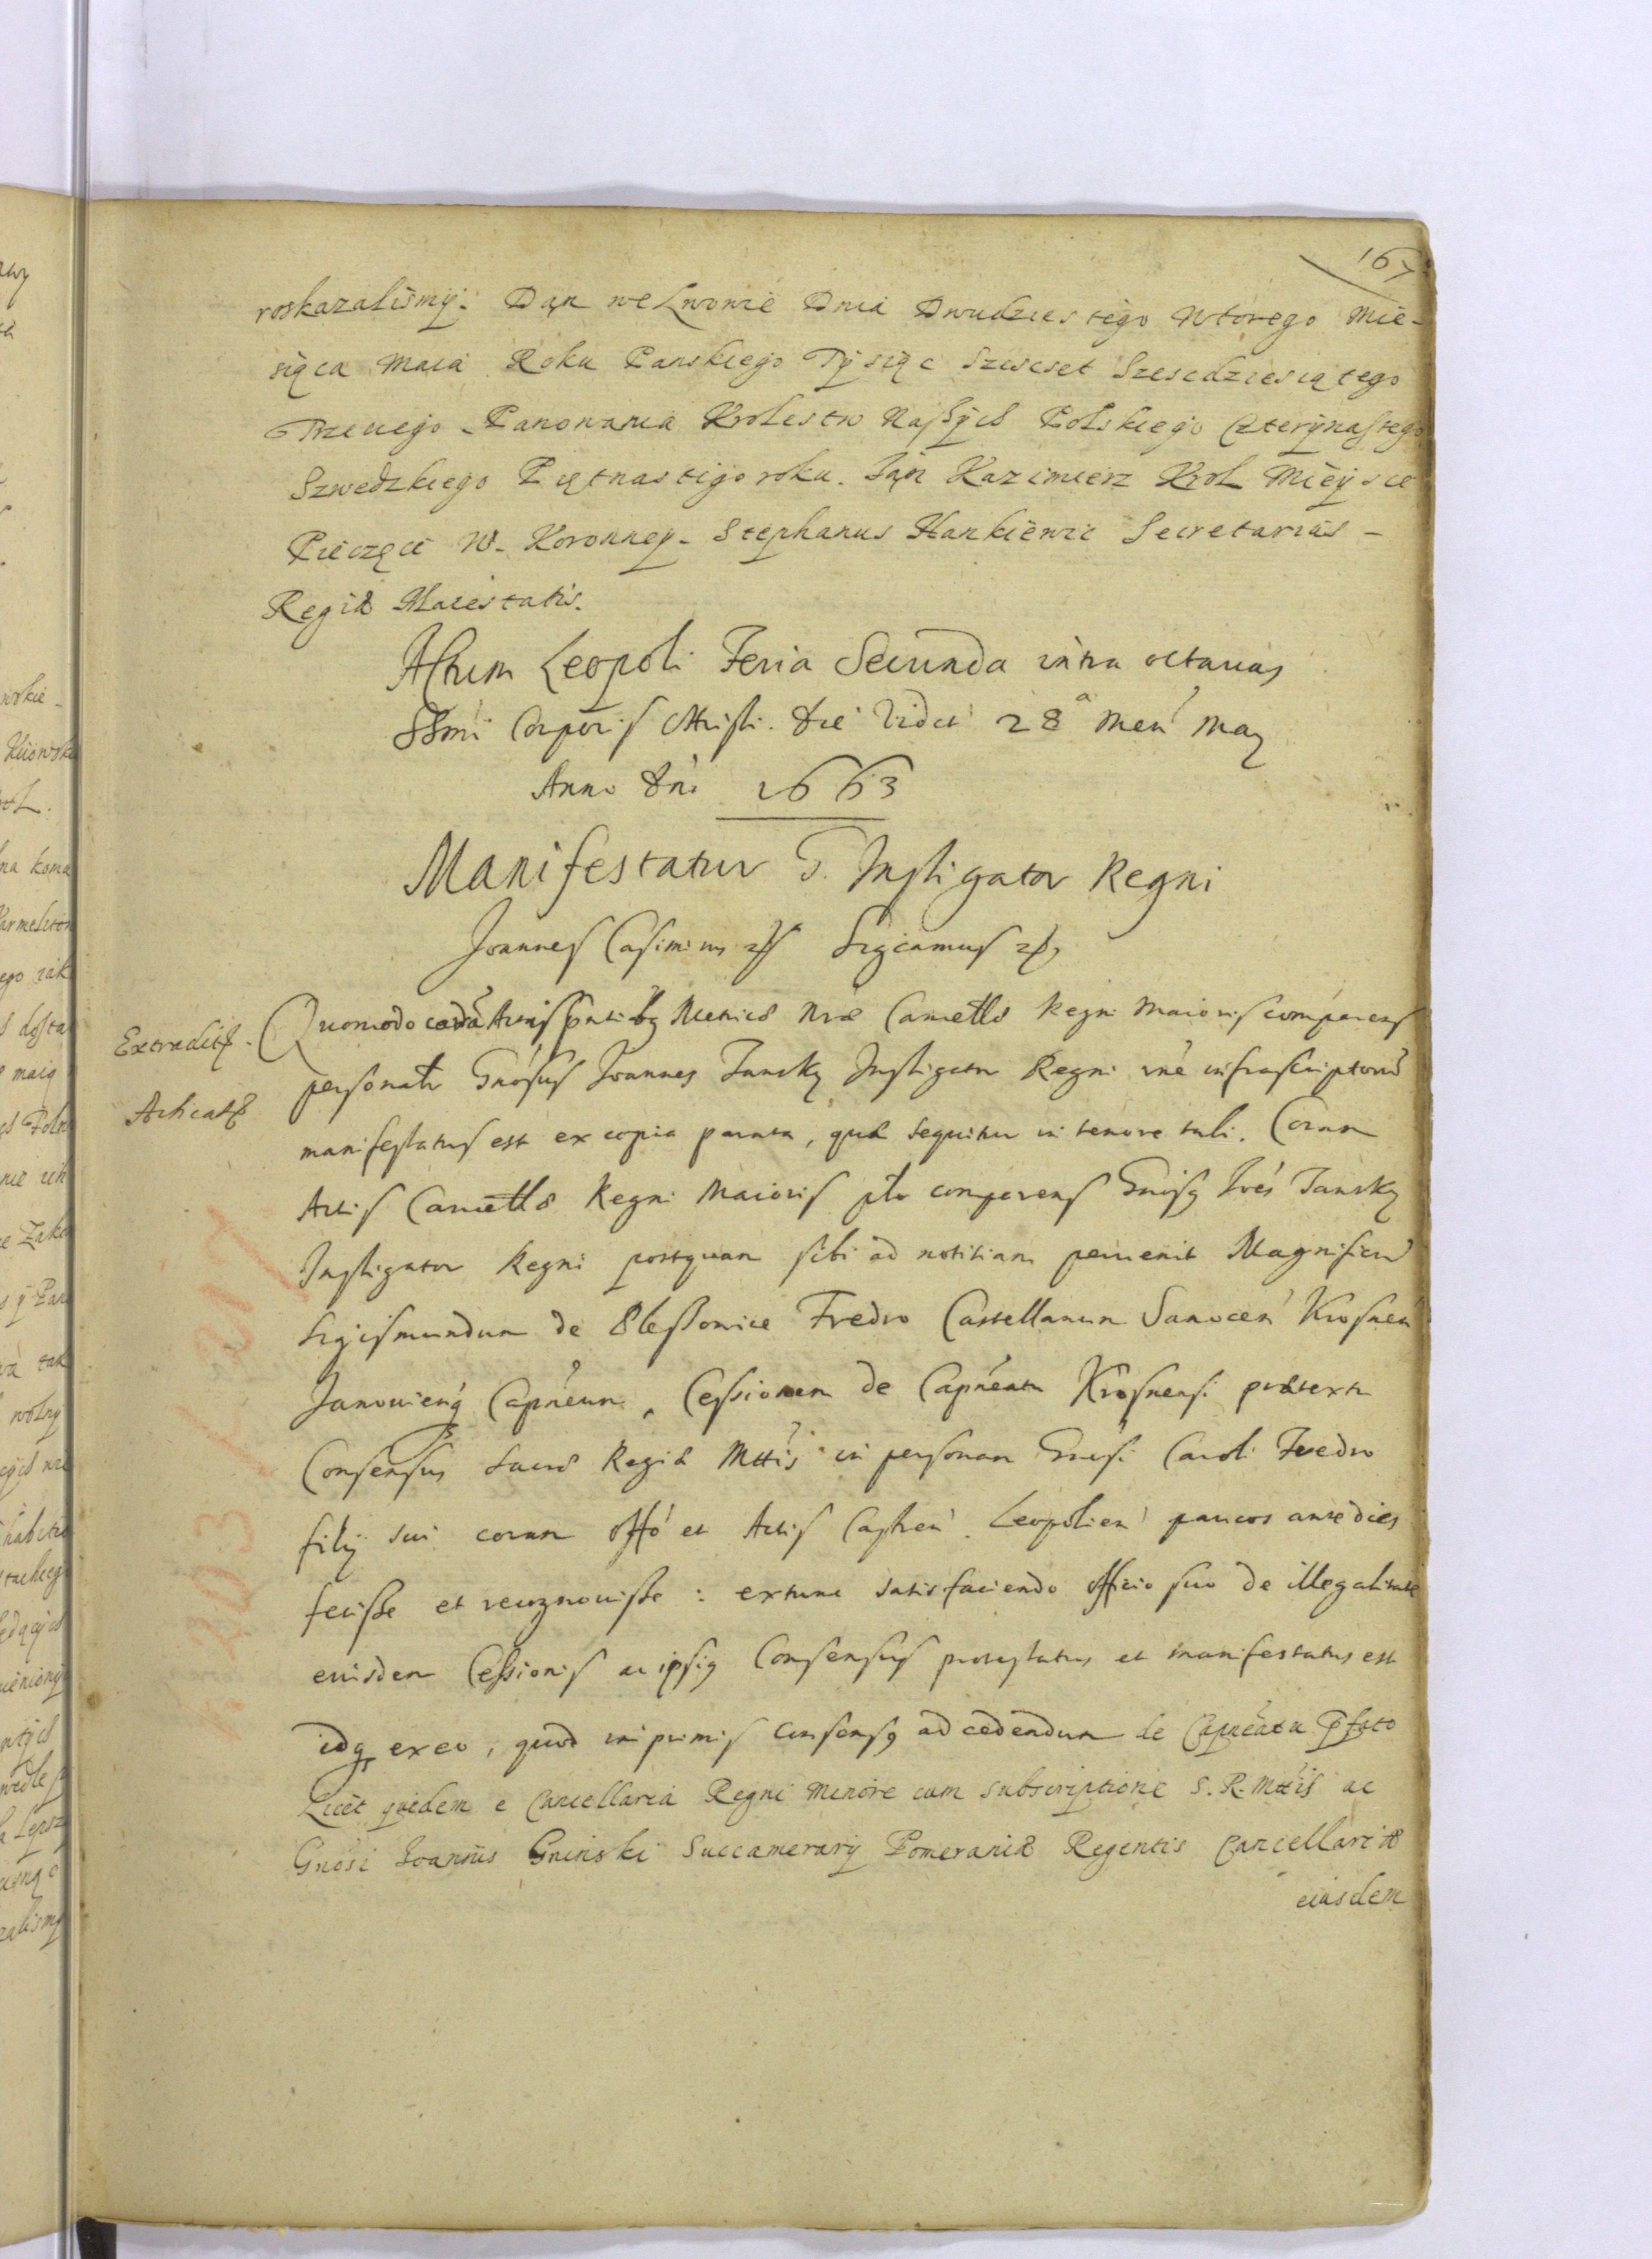 167
roskazalismy. Dan we Lwowie Dnia Dwudziestego Wtorego Mie-
siąca Maia Roku Panskiego Tysiąc Szescset Szescdziesiątego
Trzeciego Panowania Krolestw Naszych Polskiego Czterynastego
Szwedzkiego Piętnastego roku. Jan Kazimierz Krol Mieysce
Pieczęci W. Koronney. Stephanus Hankiewic Secretarius -
Regiæ Maiestatis.
Actum Leopoli Feria Secunda intra octavas
SSmi Corporis Christi. die videt 28ª Men May
Anno Dni 1663
Manifestatur G. Instigator Regni
Joannes Casimirus Significamus
Extradit
Quomodo coram Actis pntibg Metrices Nræ Cancellæ Regni Maioris comparens
personalr Gnosus Joannes Jansky Instigator Regni nne infrascriptorum
Acticat
manifestatus est ex copia parata, quæ sequitur in tenore tali. Coram
Actis Cancellæ Regni Maioris plr comparens Gnosg Joes Jansky
Instigator Regni postquam sibi ad notitiam pervenit Magnificum
Sigismundum de Plessowice Fredro Castellanum Sanocen Krosnen
Janovieng Capneum, Cessionem de Capneatu Krosnensi prætextu
Consensus Sacræ Regiæ Mttis in personam Gnosi Caroli Fredro
filij sui coram Offo et Actis Castren Leopolien paucos ante dies
fecisse et recognovisse: extunc satisfaciendo officio suo de illegalitate
eiusdem Cessionis ac ipsig Consensus protestatus et manifestatus est
idq ex eo, quod in primis consensg ad cedendum de Capneatu pfato
Licet quidem e Cancellaria Regni Minore cum subscriptione S. R. Mttis ac
Gnosi Joannis Gninski Succamerarij Pomeraniæ Regentis Cancellariæ
eiusdem